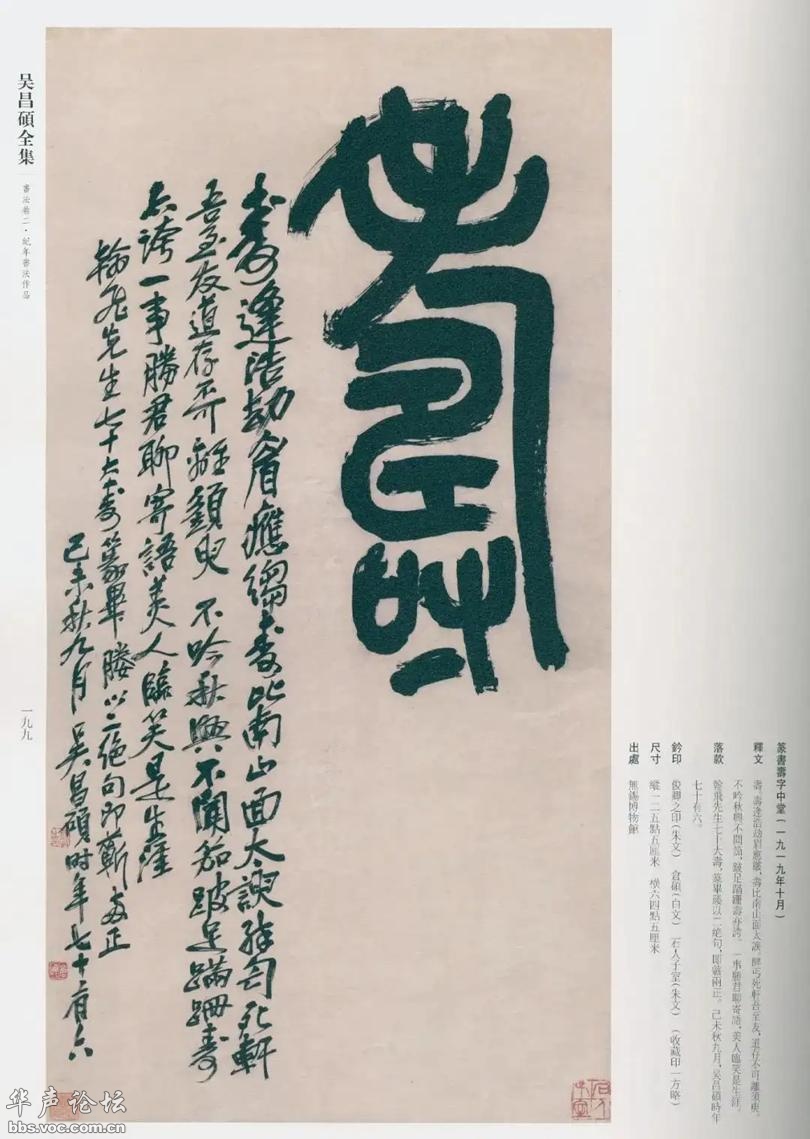 壽
壽逢浩劫眉應縐壽比南山面太諛醉匄死軒
吾至友道存不可離須臾不吟秋興不聞笳跛足蹣跚壽
亦誇一事勝君聊寄語美人臨笑是生涯
翰飛先生七十大壽篆畢媵以二絕句即蘄兩正
己未秋九月吳昌碩時年七十有六
吴昌碩全集
書法卷二·紀年書法作品
一九九
篆書壽字中堂(一九一九年十月)
釋文 壽。壽逢浩劫眉應縐,壽比南山面太諛。醉丐死軒吾至友,道存不可離須臾。
不吟秋興不聞笳,跛足蹣跚壽亦誇。一事勝君聊寄語,美人臨笑是生涯。
落款 翰飛先生七十大壽,篆畢媵以二絕句,即蘄兩正。己未秋九月,吴昌碩時年
七十有六。
鈐印 俊卿之印(朱文) 倉碩(白文) 石人子室(朱文) (收藏印一方略)
尺寸 縱一二五點五厘米 橫六四點五厘米
出處 無錫博物館
华声论坛
bbs.voc.com.cn